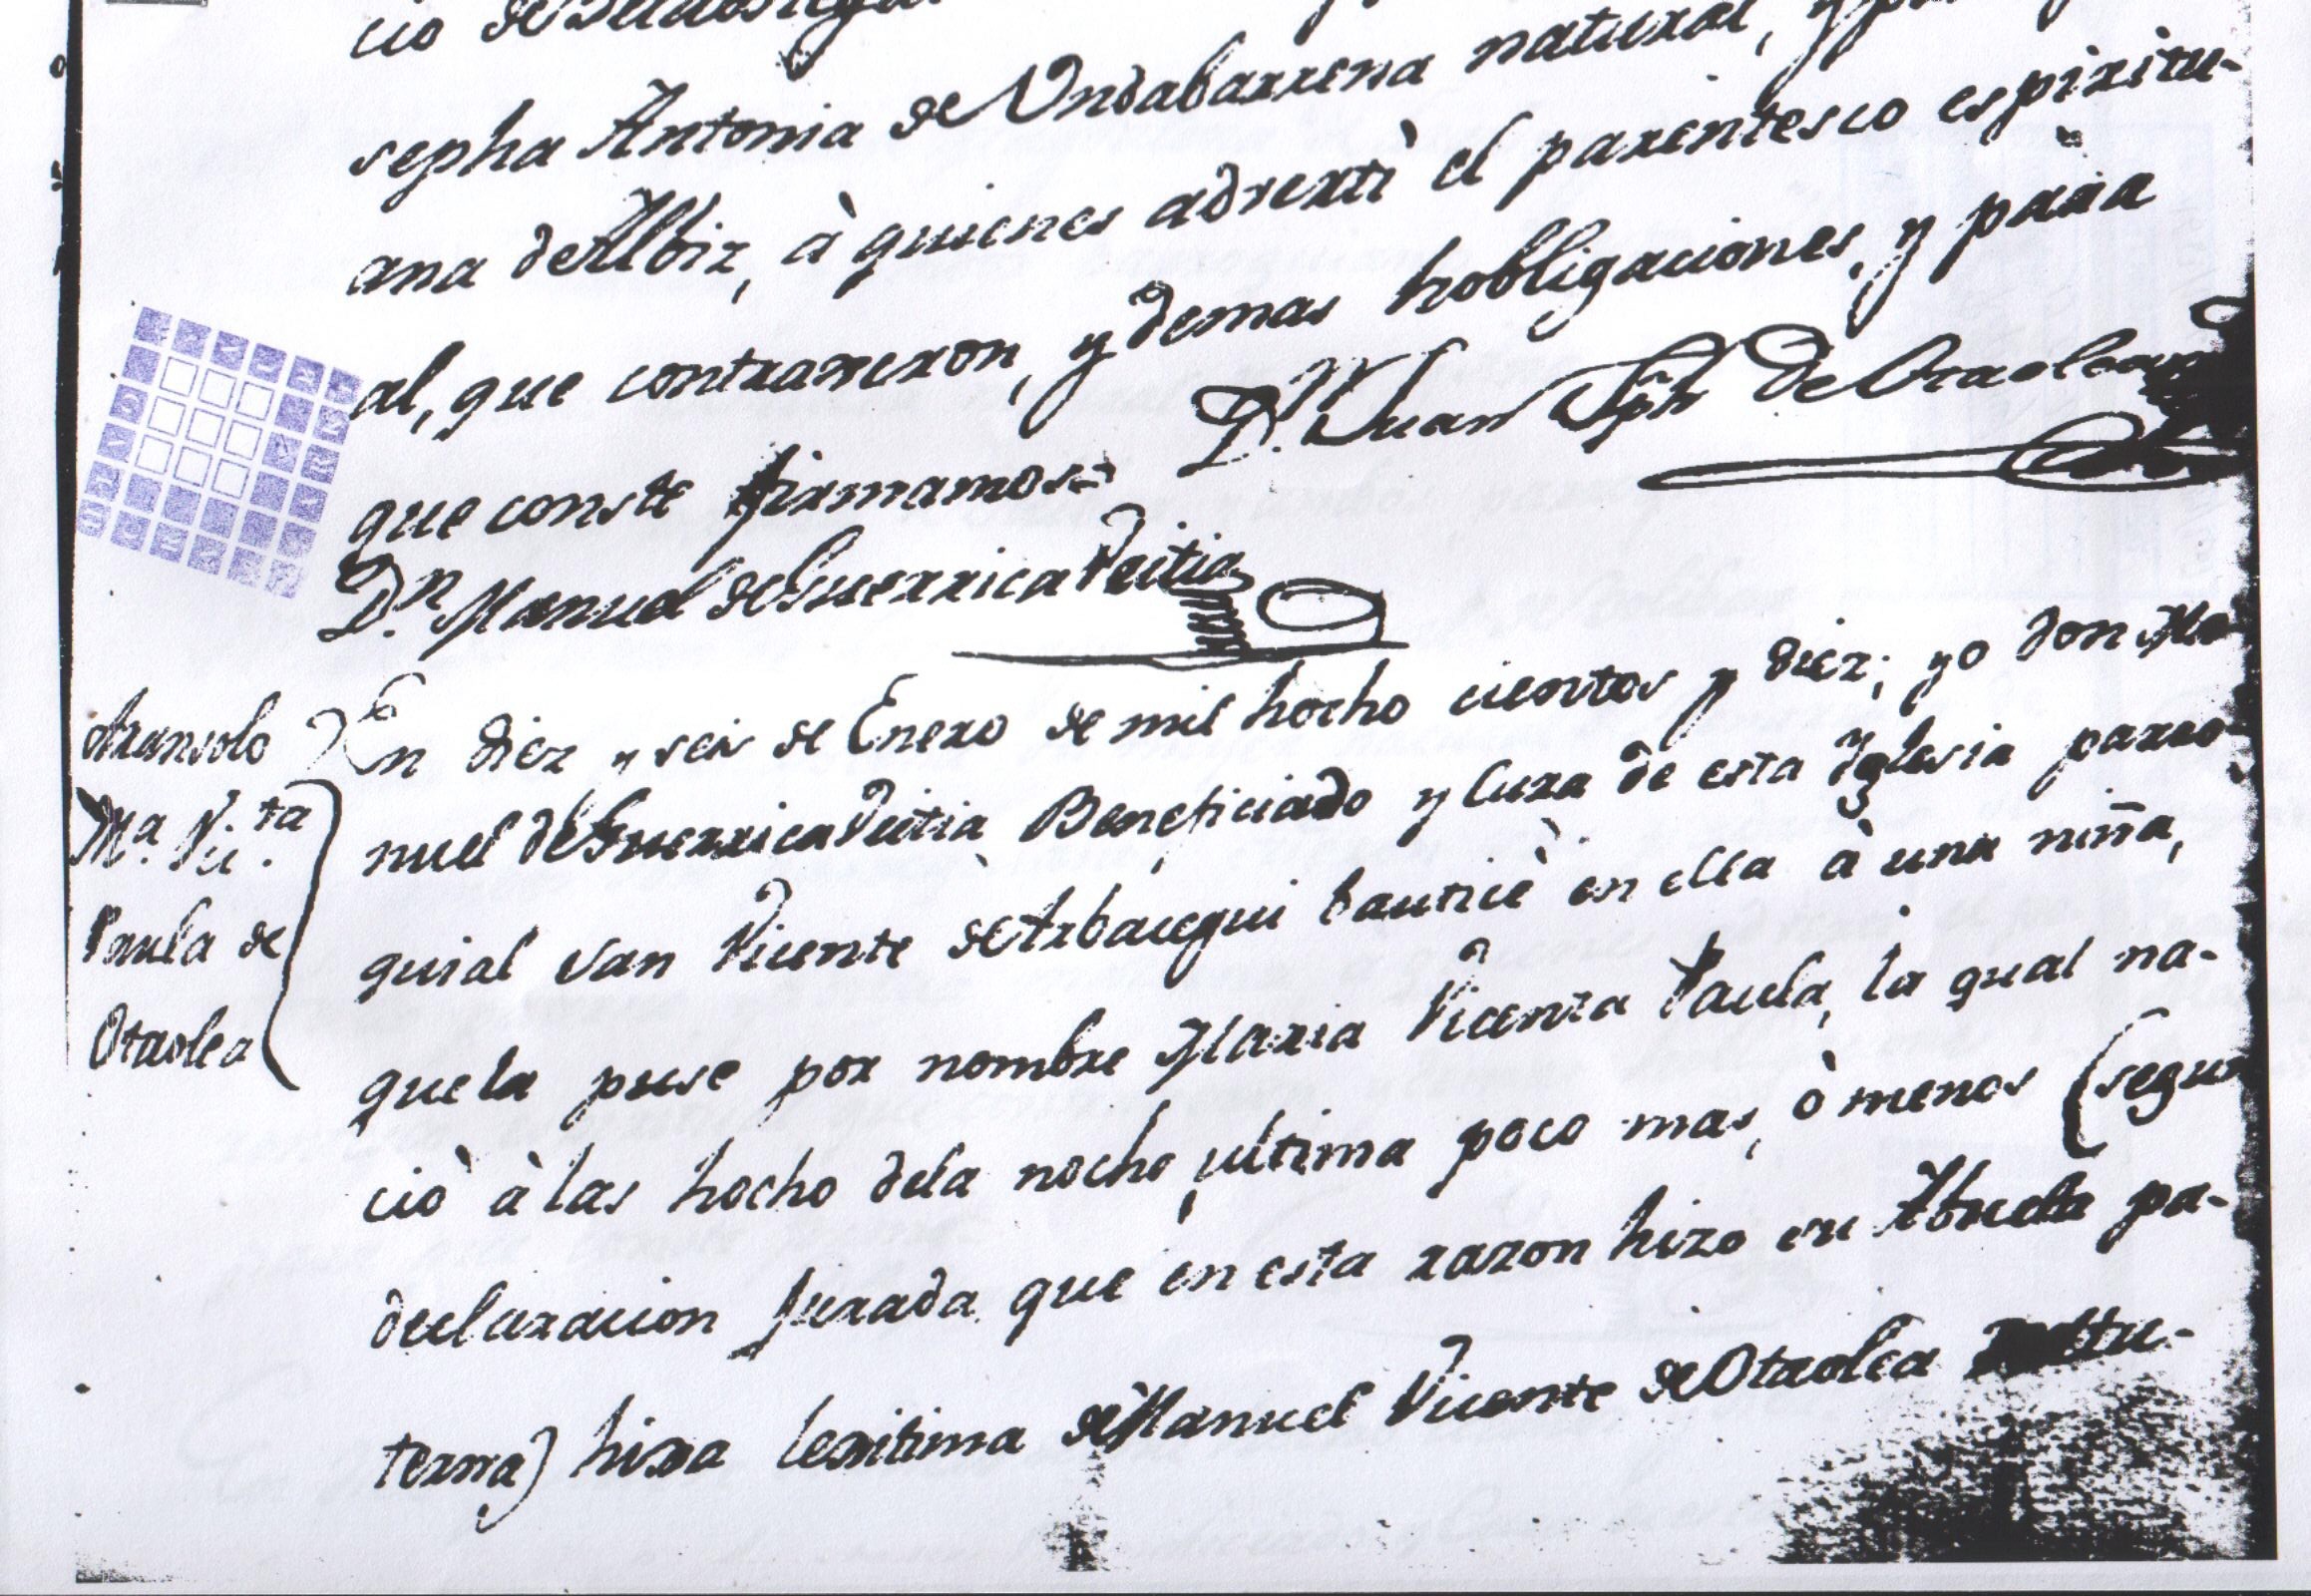 cio de
sepha Antonia de Undabarrena natural, y
ana de Albiz, à quienes advertì el parentesco espiritu-
al, que contraxeron, y demas hobligaciones, y para
que conste firmamos= D. Juan Jph de Otaolea
Dn. Manuel de Guerricaveitia
Aransolo
Ma. Vi.ta
Paula de
Otaolea
En diez y seis de Enero de mil hocho cientos y diez; yo don Ma
nuel de Guerricaveitia Beneficiado y Cura de esta Yglesia parro
quial San Vicente de Arbacegui bauticè en ella à una niña,
que la puse por nombre Maria Vicenta Paula, la qual na-
ciò à las hocho dela noche ultima poco mas, ò menos (segun
declaracion jurada que en esta razon hizo su Abuela pa-
terna) hixa lexitima de Manuel Vicente de Otaolea